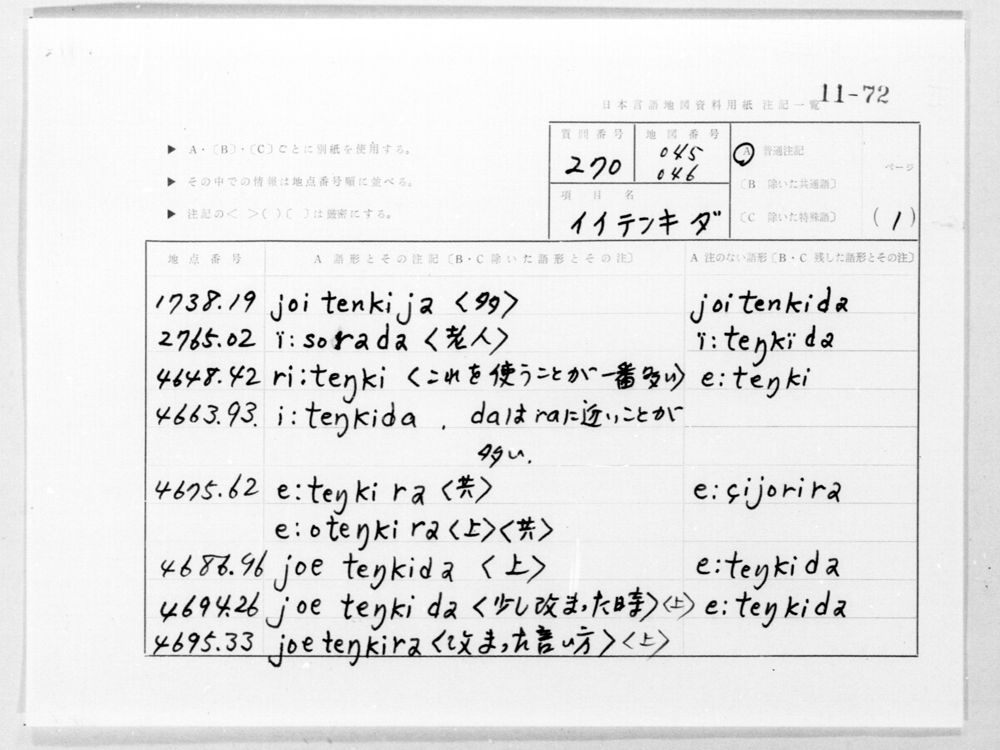 11-72
日本言語地図資料用紙 注記一覧
▶ A・〔B〕・〔C〕ごとに別紙を使用する。
▶ その中での情報は地点番号順に並べる。
▶ 注記の< >( )〔 〕は厳密にする。
質問番号 地図番号
270 045 046
項目名
イイテンキダ
A 普通注記
〔B 除いた共通語〕
〔C 除いた特殊語〕
ページ
(1)
地点番号 A 語形とその注記〔B・C 除いた語形とその注〕 A 注のない語形〔B・C 残した語形とその注〕
1738.19 joi tenki ja <多> joi tenkida
2765.02 ï:sorada <老人> ï:teŋkïda
4648.42 ri:teŋki <これを使うことが一番多い> e:teŋki
4663.93. i:teŋkida . daはraに近いことが
多い.
4675.62 e:teŋki ra <共> e:çijorira
e:oteŋki ra <上><共>
4686.96 joe teŋkida <上> e:teŋkida
4694.26 joe teŋki da <少し改まった時><上> e:teŋkida
4695.33 joeteŋkira <改まった言い方><上>